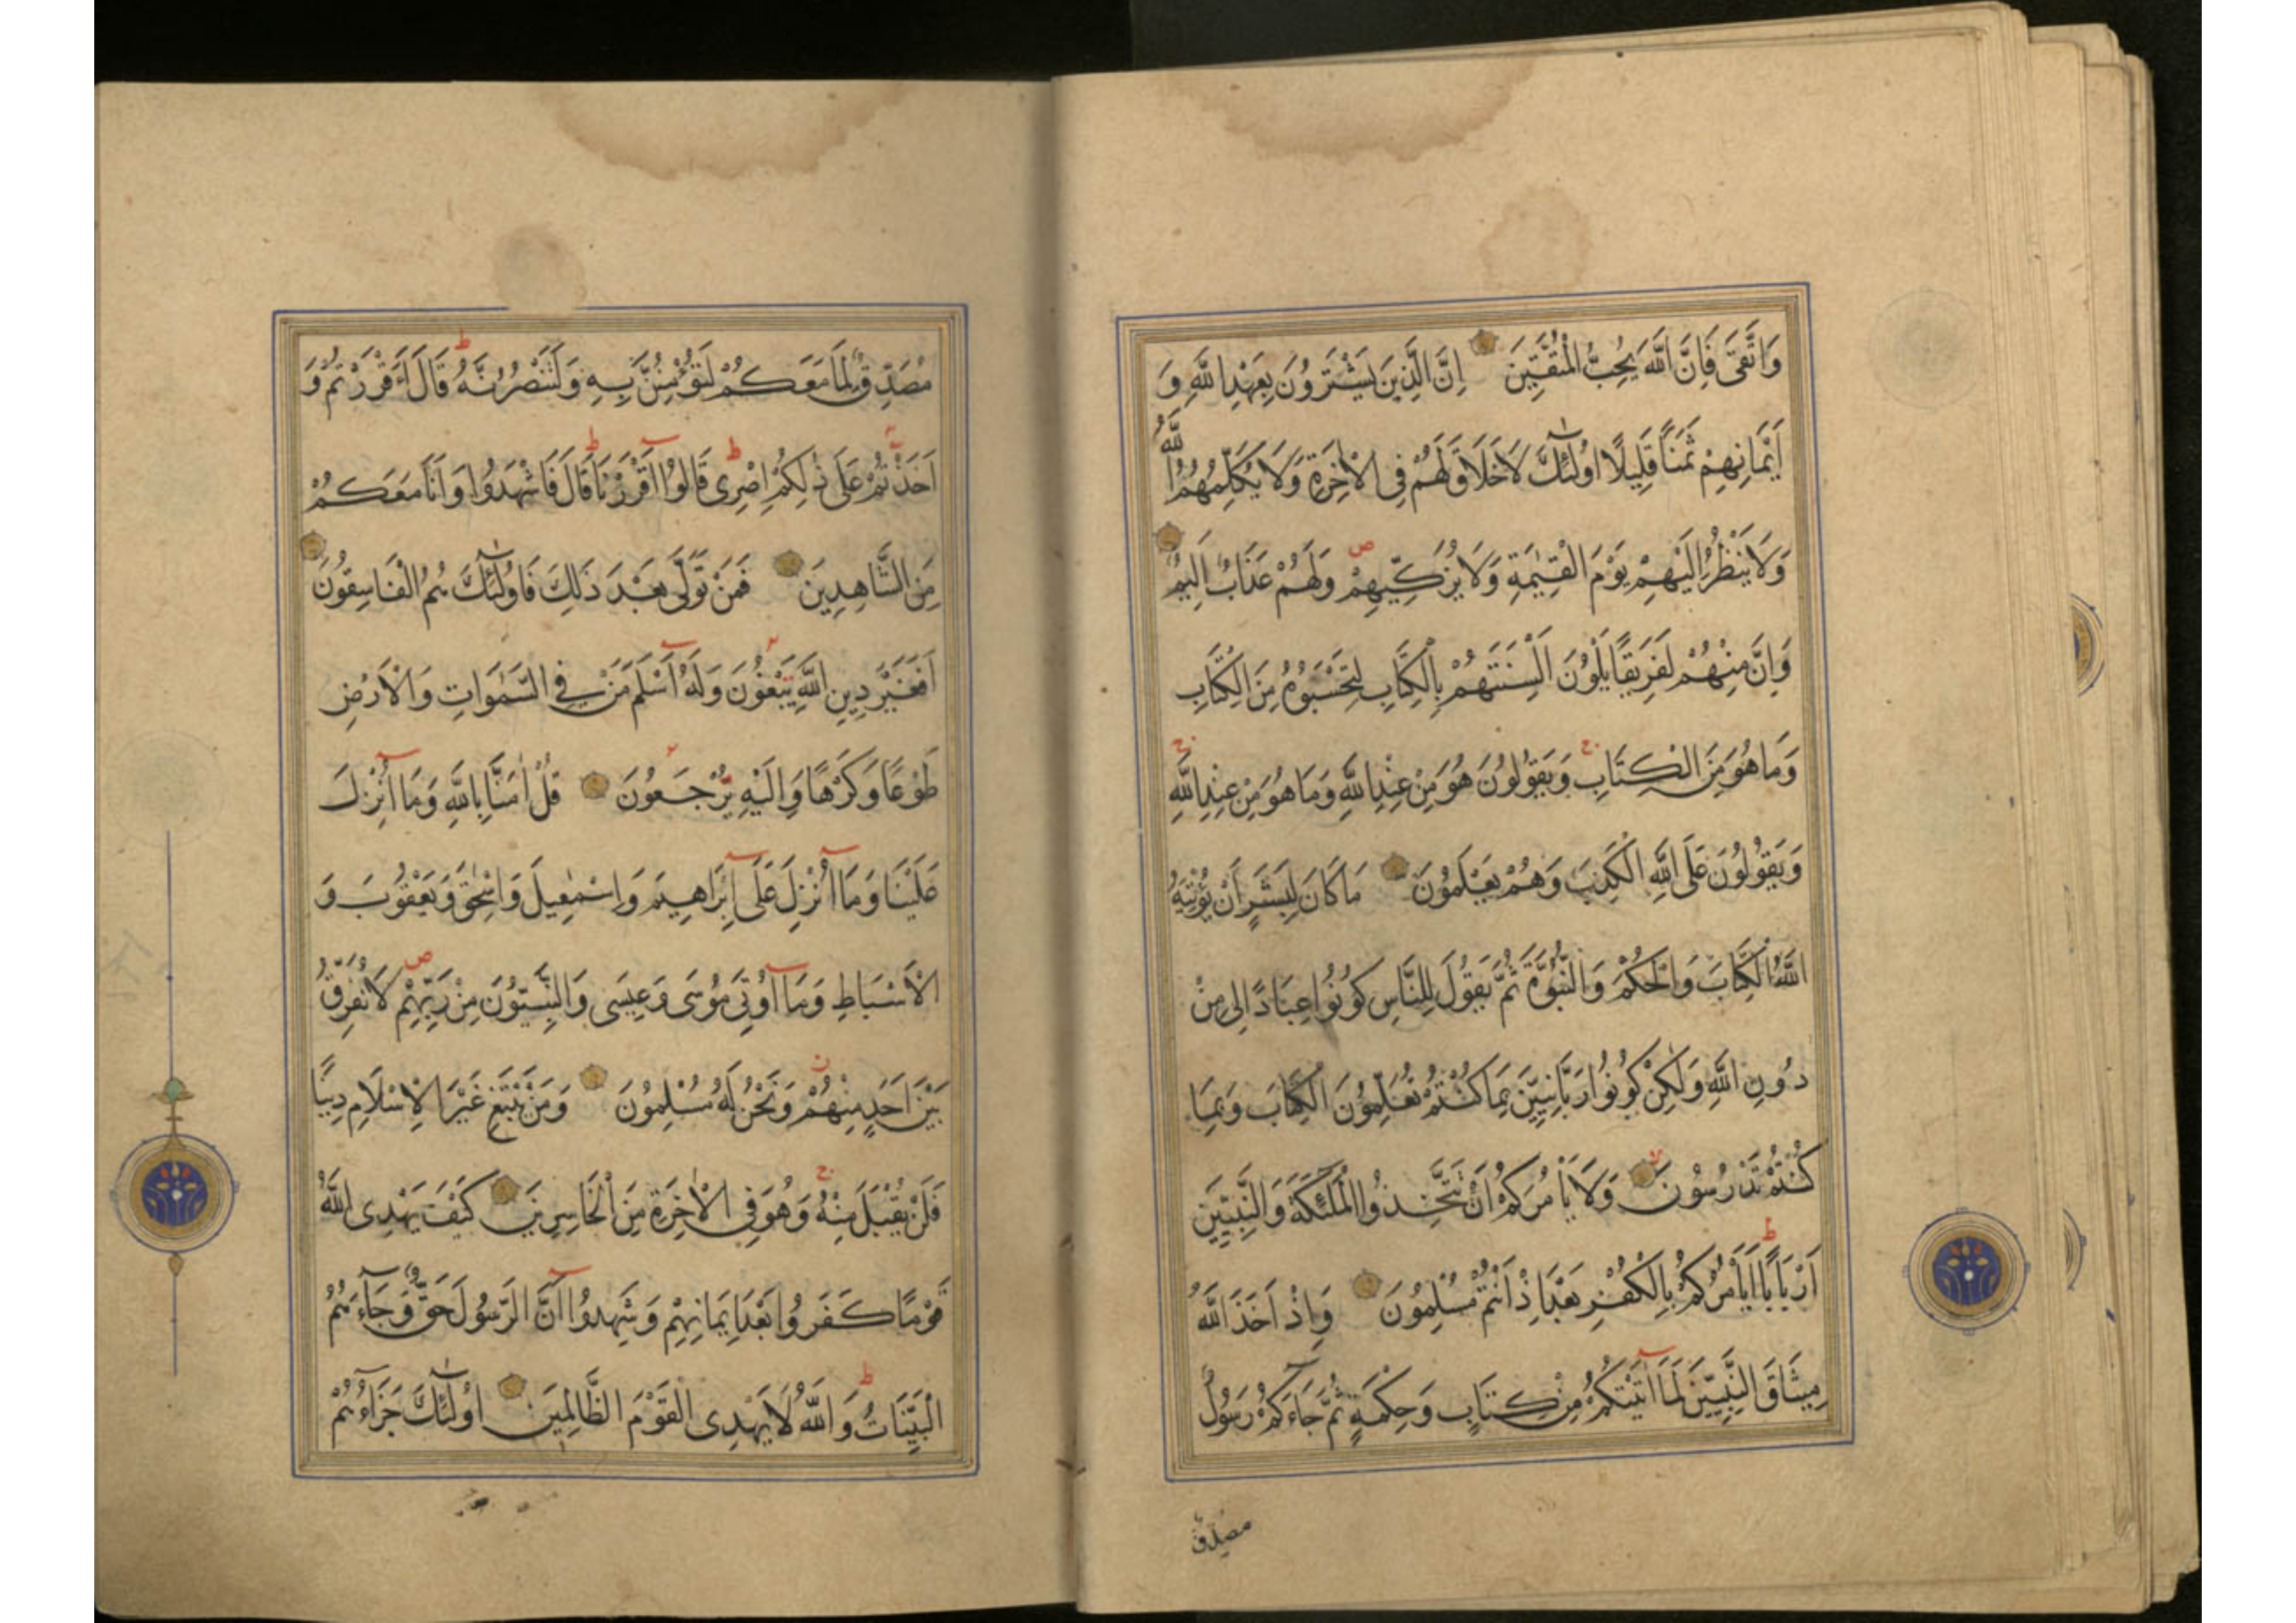 وَاتَّقَىٰ فَاِنَّ اللّٰهَ يُحِبُّ الْمُتَّقِينَ اِنَّ الَّذِينَ يَشْتَرُونَ بِعَهْدِ اللّٰهِ وَ
اَيْمَانِهِمْ ثَمَنًا قَلِيلًا اُولٰئِكَ لَا خَلَاقَ لَهُمْ فِى الْاٰخِرَةِ وَلَا يُكَلِّمُهُمُ اللّٰهُ
وَلَا يَنْظُرُ اِلَيْهِمْ يَوْمَ الْقِيٰمَةِ وَلَا يُزَكِّيهِمْ ص وَلَهُمْ عَذَابٌ اَلِيمٌ
وَاِنَّ مِنْهُمْ لَفَرِيقًا يَلْوُنَ اَلْسِنَتَهُمْ بِالْكِتَابِ لِتَحْسَبُوهُ مِنَ الْكِتَابِ
وَمَا هُوَ مِنَ الْكِتَابِ ج وَيَقُولُونَ هُوَ مِنْ عِنْدِ اللّٰهِ وَمَا هُوَ مِنْ عِنْدِ اللّٰهِ ج
وَيَقُولُونَ عَلَى اللّٰهِ الْكَذِبَ وَهُمْ يَعْلَمُونَ مَا كَانَ لِبَشَرٍ اَنْ يُؤْتِيَهُ
اللّٰهُ الْكِتَابَ وَالْحُكْمَ وَالنُّبُوَّةَ ثُمَّ يَقُولَ لِلنَّاسِ كُونُوا عِبَادًا لِى مِنْ
دُونِ اللّٰهِ وَلٰكِنْ كُونُوا رَبَّانِيِّينَ بِمَا كُنْتُمْ تُعَلِّمُونَ الْكِتَابَ وَبِمَا
كُنْتُمْ تَدْرُسُونَ لا وَلَا يَأْمُرَكُمْ اَنْ تَتَّخِذُوا الْمَلٰئِكَةَ وَالنَّبِيِّينَ
اَرْبَابًا ط اَيَأْمُرُكُمْ بِالْكُفْرِ بَعْدَ اِذْ اَنْتُمْ مُسْلِمُونَ وَاِذْ اَخَذَ اللّٰهُ
مِيثَاقَ النَّبِيِّينَ لَمَا اٰتَيْتُكُمْ مِنْ كِتَابٍ وَحِكْمَةٍ ثُمَّ جَاءَكُمْ رَسُولٌ
مصدق
مُصَدِّقٌ لِمَا مَعَكُمْ لَتُؤْمِنُنَّ بِهِ وَلَتَنْصُرُنَّهُ ط قَالَ ءَاَقْرَرْتُمْ وَ
اَخَذْتُمْ عَلَىٰ ذٰلِكُمْ اِصْرِى ط قَالُوا اَقْرَرْنَا ط قَالَ فَاشْهَدُوا وَاَنَا مَعَكُمْ
مِنَ الشَّاهِدِينَ فَمَنْ تَوَلَّىٰ بَعْدَ ذَلِكَ فَاُولٰئِكَ هُمُ الْفَاسِقُونَ
اَفَغَيْرَ دِينِ اللّٰهِ يَبْغُونَ وَلَهُ اَسْلَمَ مَنْ فِي السَّمٰوَاتِ وَالْاَرْضِ
طَوْعًا وَكَرْهًا وَاِلَيْهِ يُرْجَعُونَ قُلْ اٰمَنَّا بِاللّٰهِ وَمَا اُنْزِلَ
عَلَيْنَا وَمَا اُنْزِلَ عَلَىٰ اِبْرَاهِيمَ وَاِسْمٰعِيلَ وَاِسْحٰقَ وَيَعْقُوبَ وَ
الْاَسْبَاطِ وَمَا اُوتِىَ مُوسَى وَعِيسَى وَالنَّبِيُّونَ مِنْ رَبِّهِمْ ص لَا نُفَرِّقُ
بَيْنَ اَحَدٍ مِنْهُمْ وَنَحْنُ لَهُ مُسْلِمُونَ وَمَنْ يَبْتَغِ غَيْرَ الْاِسْلَامِ دِينًا
فَلَنْ يُقْبَلَ مِنْهُ ج وَهُوَ فِى الْاٰخِرَةِ مِنَ الْخَاسِرِينَ كَيْفَ يَهْدِى اللّٰهُ
قَوْمًا كَفَرُوا بَعْدَ اِيمَانِهِمْ وَشَهِدُوا اَنَّ الرَّسُولَ حَقٌّ وَجَاءَهُمُ
الْبَيِّنَاتُ ط وَاللّٰهُ لَا يَهْدِى الْقَوْمَ الظَّالِمِينَ اُولٰئِكَ جَزَاؤُهُمْ